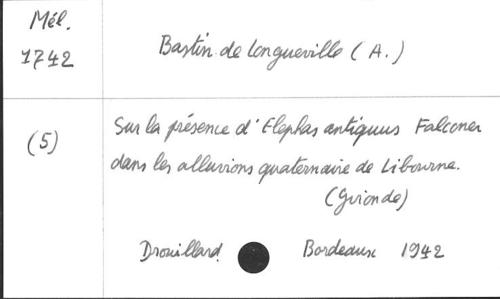 Mél.
1742
Bastin de Longueville (A.)
(5)
Sur la présence d'Elephas antiquus Falconer
dans les alluvions quaternaire de Libourne.
(Gironde)
Drouillard Bordeaux 1942